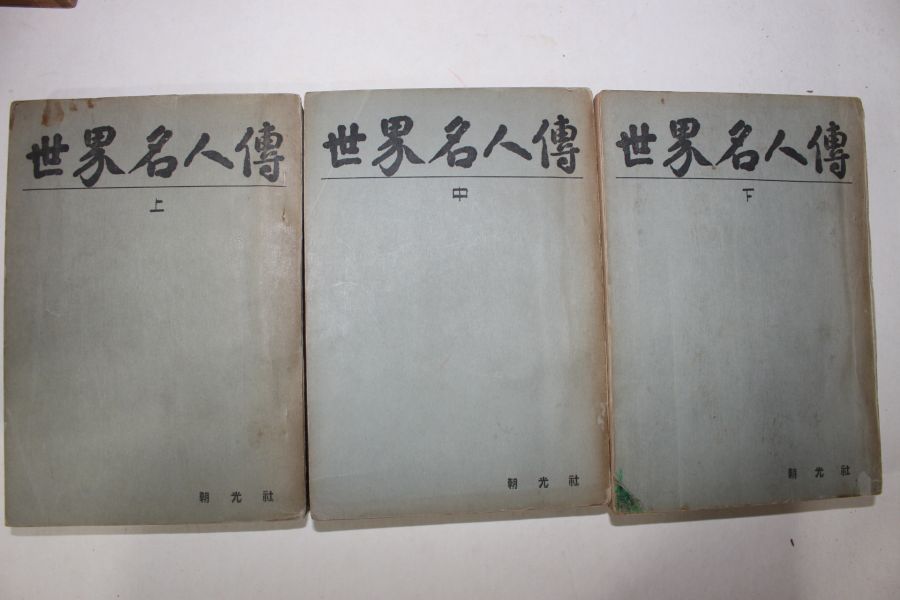 世界名人傳
上
朝光社
世界名人傳
中
朝光社
世界名人傳
下
朝光社